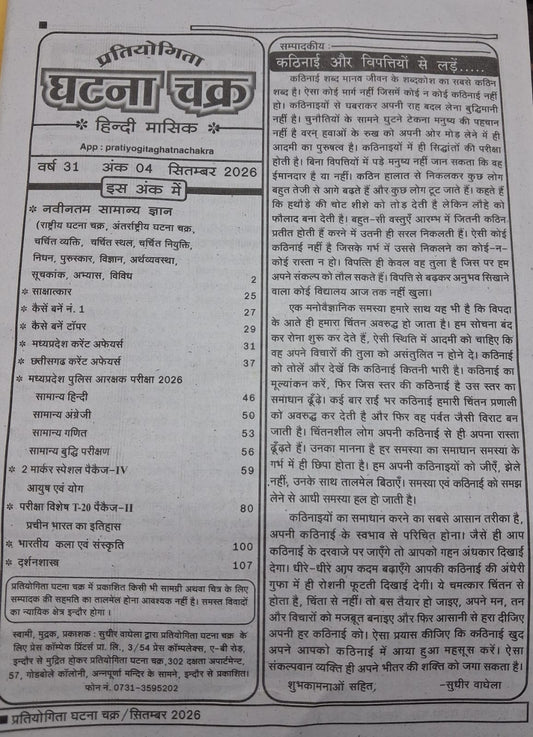 प्रतियोगिता
घटना चक्र
* हिन्दी मासिक *
App : pratiyogitaghatnachakra
वर्ष 31 अंक 04 सितम्बर 2026
इस अंक में
* नवीनतम सामान्य ज्ञान
(राष्ट्रीय घटना चक्र, अंतर्राष्ट्रीय घटना चक्र,
चर्चित व्यक्ति, चर्चित स्थल, चर्चित नियुक्ति,
निधन, पुरुस्कार, विज्ञान, अर्थव्यवस्था,
सूचकांक, अभ्यास, विविध 2
* साक्षात्कार 25
* कैसें बनें नं. 1 27
* कैसे बनें टॉपर 29
* मध्यप्रदेश करेंट अफेयर्स 31
* छत्तीसगढ करेंट अफेयर्स 37
* मध्यप्रदेश पुलिस आरक्षक परीक्षा 2026
सामान्य हिन्दी 46
सामान्य अंग्रेजी 50
सामान्य गणित 53
सामान्य बुद्धि परीक्षण 56
* 2 मार्कर स्पेशल पैकैज-IV 59
आयुष एवं योग
* परीक्षा विशेष T-20 पैकैज-II 80
प्राचीन भारत का इतिहास
* भारतीय कला एवं संस्कृति 100
* दर्शनशास्त्र 107
प्रतियोगिता घटना चक्र में प्रकाशित किसी भी सामग्री अथवा चित्र के लिए
सम्पादक की सहमति का तालमेल होना आवश्यक नहीं है। समस्त विवादों
का न्यायिक क्षेत्र इन्दौर होगा।
स्वामी, मुद्रक, प्रकाशक : सुधीर वाघेला द्वारा प्रतियोगिता घटना चक्र के
लिए प्रेस कॉम्पेक प्रिंटर्स प्रा. लि., 3/54 प्रेस कॉम्पलेक्स, ए-बी रोड़,
इन्दौर से मुद्रित होकर प्रतियोगिता घटना चक्र,302 दक्षता अपार्टमेण्ट,
57, गोडबोले कॉलोनी, अन्नपूर्णा मन्दिर के सामने, इन्दौर से प्रकाशित।
फोन नं. 0731-3595202
सम्पादकीय :
कठिनाई और विपत्तियों से लड़ें.....
कठिनाई शब्द मानव जीवन के शब्दकोश का सबसे कठिन
शब्द है। ऐसा कोई मार्ग नहीं जिसमें कोई न कोई कठिनाई नहीं
हो। कठिनाइयों से घबराकर अपनी राह बदल लेना बुद्धिमानी
नहीं है। चुनौतियों के सामने घुटने टेकना मनुष्य की पहचान
नहीं है वरन् हवाओं के रुख को अपनी ओर मोड़ लेने में ही
आदमी का पुरुषत्व है। कठिनाइयों में ही सिद्धांतों की परीक्षा
होती है। बिना विपत्तियों में पड़े मनुष्य नहीं जान सकता कि वह
ईमानदार है या नहीं। कठिन हालात से निकलकर कुछ लोग
बहुत तेजी से आगे बढ़ते हैं और कुछ लोग टूट जाते हैं। कहते हैं
कि हथौड़े की चोट शीशे को तोड़ देती है लेकिन लौहे को
फौलाद बना देती है। बहुत-सी वस्तुएँ आरम्भ में जितनी कठिन
प्रतीत होती हैं करने में उतनी ही सरल निकलती हैं। ऐसी कोई
कठिनाई नहीं है जिसके गर्भ में उससे निकलने का कोई-न-
कोई रास्ता न हो। विपत्ति ही केवल वह तुला है जिस पर हम
अपने संकल्प को तौल सकते हैं। विपत्ति से बढ़कर अनुभव सिखाने
वाला कोई विद्यालय आज तक नहीं खुला।
एक मनोवैज्ञानिक समस्या हमारे साथ यह भी है कि विपदा
के आते ही हमारा चिंतन अवरुद्ध हो जाता है। हम सोचना बंद
कर रोना शुरू कर देते हैं, ऐसी स्थिति में आदमी को चाहिए कि
वह अपने विचारों की तुला को असंतुलित न होने दे। कठिनाई
को तोलें और देखें कि कठिनाई कितनी भारी है। कठिनाई का
मूल्यांकन करें, फिर जिस स्तर की कठिनाई है उस स्तर का
समाधान ढूँढ़े। कई बार राई भर कठिनाई हमारी चिंतन प्रणाली
को अवरुद्ध कर देती है और फिर वह पंर्वत जैसी विराट बन
जाती है। चिंतनशील लोग अपनी कठिनाई से ही अपना रास्ता
ढूँढ़ते हैं। उनका मानना है हर समस्या का समाधान समस्या के
गर्भ में ही छिपा होता है। हम अपनी कठिनाइयों को जीएँ, झेले
नहीं, उनके साथ तालमेल बिठाएँ। समस्या एवं कठिनाई को समझ
लेने से आधी समस्या हल हो जाती है।
कठिनाइयों का समाधान करने का सबसे आसान तरीका है,
अपनी कठिनाई के स्वभाव से परिचित होना। जैसे ही आप
कठिनाई के दरवाजे पर जाएँगे तो आपको गहन अंधकार दिखाई
देगा। धीरे-धीरे आप कदम बढ़ाएँगे आपकी कठिनाई की अंधेरी
गुफा में ही रोशनी फूटती दिखाई देगी। ये चमत्कार चिंतन से
होता है, चिंता से नहीं। तो बस तैयार हो जाइए, अपने मन, तन
और विचारों को मजबूत बनाइए और फिर आसानी से हरा दीजिए
अपनी हर कठिनाई को। ऐसा प्रयास कीजिए कि कठिनाई खुद
अपने आपको कठिनाई में आया हुआ महसूस करें। ऐसा
संकल्पवान व्यक्ति ही अपने भीतर की शक्ति को जगा सकता है।
शुभकामनाओं सहित, -सुधीर वाघेला
प्रतियोगिता घटना चक्र/सितम्बर 2026